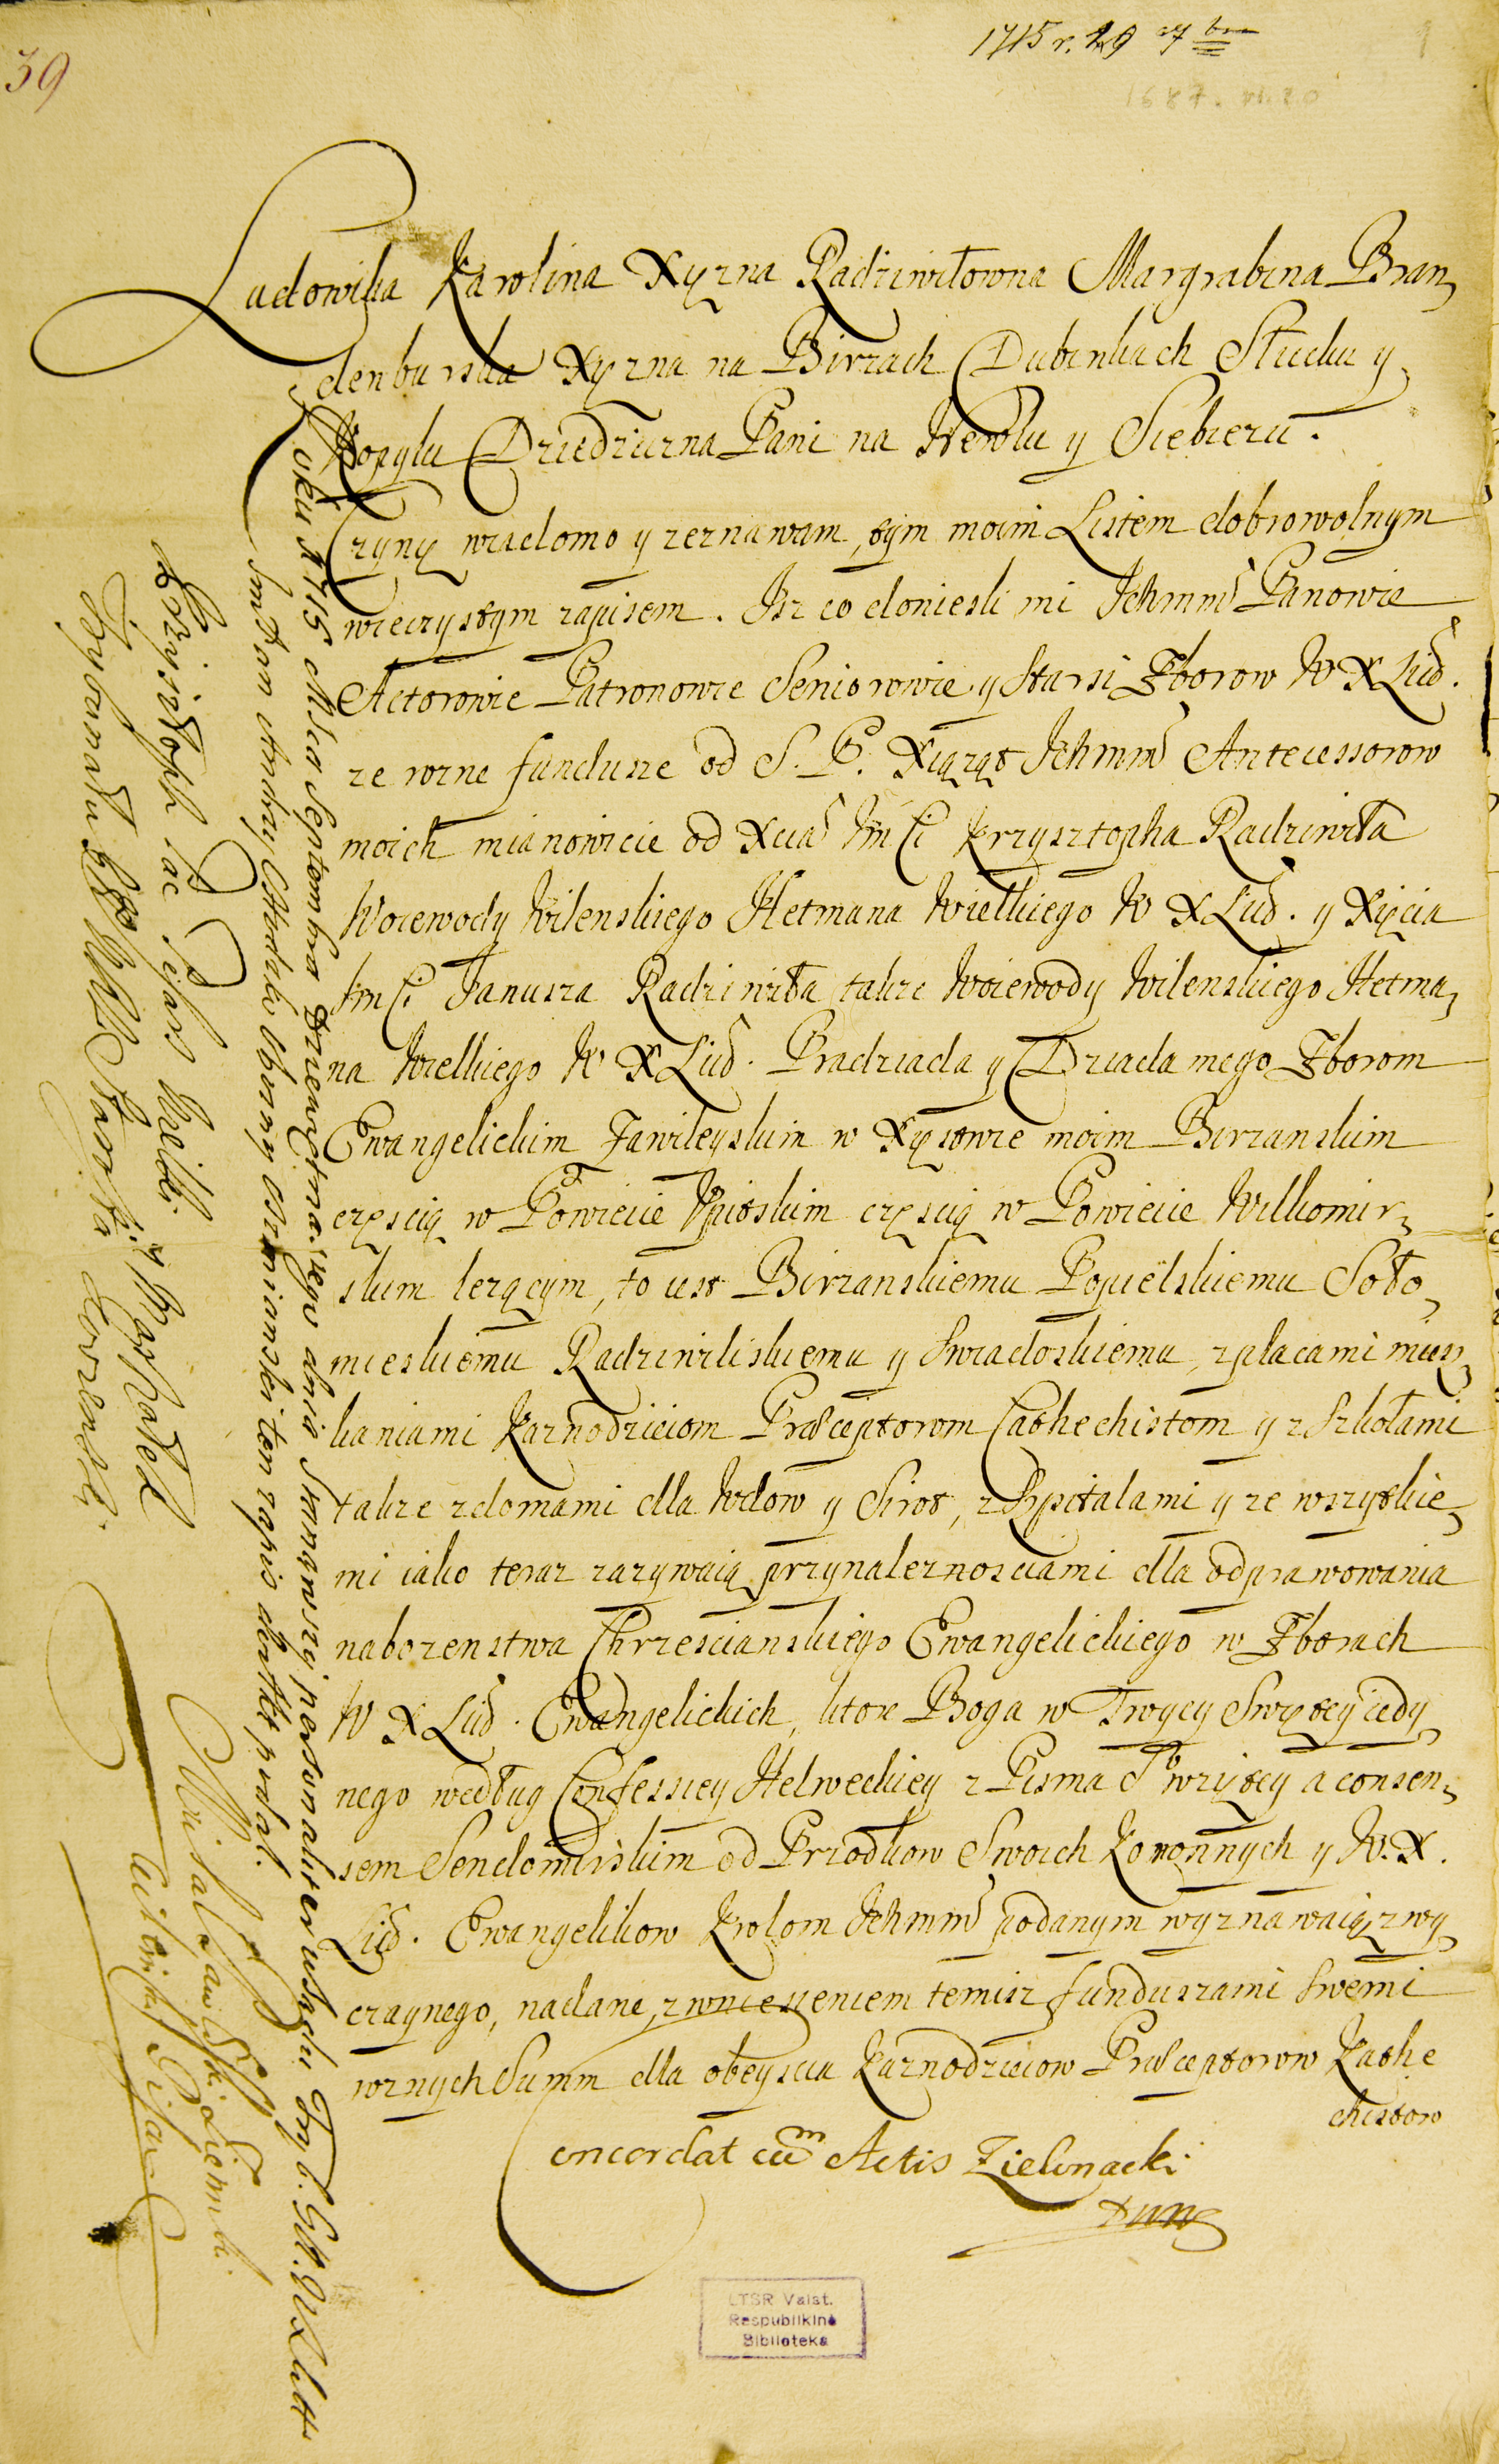 39
1715 r. 29 7bra
1687.
Ludowika Karolina Xyzna Radziwiłowna Margrabina Bran,
denburska Xyzna na Birzach Dubinkach Słucku y
Kopylu Dziedziczna Pani na Newlu y Siebieżu.
Czynę wiadomo y zeznawam, tym moim Listem dobrowolnym
wieczystym zapisem. Isz co doniesli mi Ichmm Panowie
Actorowie Patronowie Seniorowie y Starsi Zborow W X Lid.
ze rozne fundusze od S. P. Xiążąt Ichmm Antecessorow
moich mianowicie od Xcia Im Ci Krzysztopha Radziwiła
Woiewody Wilenskiego Hetmana Wielkiego W X Lid. y Xięcia
Im Ci Janusza Radziwiła także Woiewody Wilenskiego Hetma,
na Wielkiego W X Lid. Pradziada y Dziada mego Zborom
Ewangelickim Zawileyskim w Xięstwie moim Birzanskim
częscią w Powiecie Upitskim częscią w Powiecie Wilkomir,
skim leżącym, to iest Birzanskiemu Popielskiemu Soło,
mieskiemu Radziwiliskiemu y Swiadoskiemu, z placami miesz,
kaniami Kaznodzieiom Præceptorom Cathechistom y z Szkołami
także z domami dla Wdow y Sirot, z Szpitalami y ze wszytkie,
mi iako teraz zazywaią przynależnosciami dla odprawowania
nabozenstwa Chrzescianskiego Ewangelickiego w Zborach
W X Lid. Ewangelickich, ktore Boga w Troycy Swiętey iedy,
nego według Confessiey Helweckiey z Pisma S. wziętey a consen,
sem Sendomirskim od Przodkow Swoich Koronnych y W. X.
Lid. Ewangelikow Krolom Ichmm podanym wyznawaią, zwy
czaynego, nadane, z wniesieniem temisz funduszami swemi
roznych Summ dla obeyscia Kaznodzieiow Præceptorow Kathe
chistow
Concordat cum Actis Zielonacki
LTSR Valst.
Respublikinė
Biblioteka
Roku 1715 Msca Septembra Dziewętnastego dnia Stanąwszy personaliter u Sądu
Imć Pan Andrzy oszmianski ten zapis ad Acta podal.
Krzysztoph Pac Pisarz Wielki